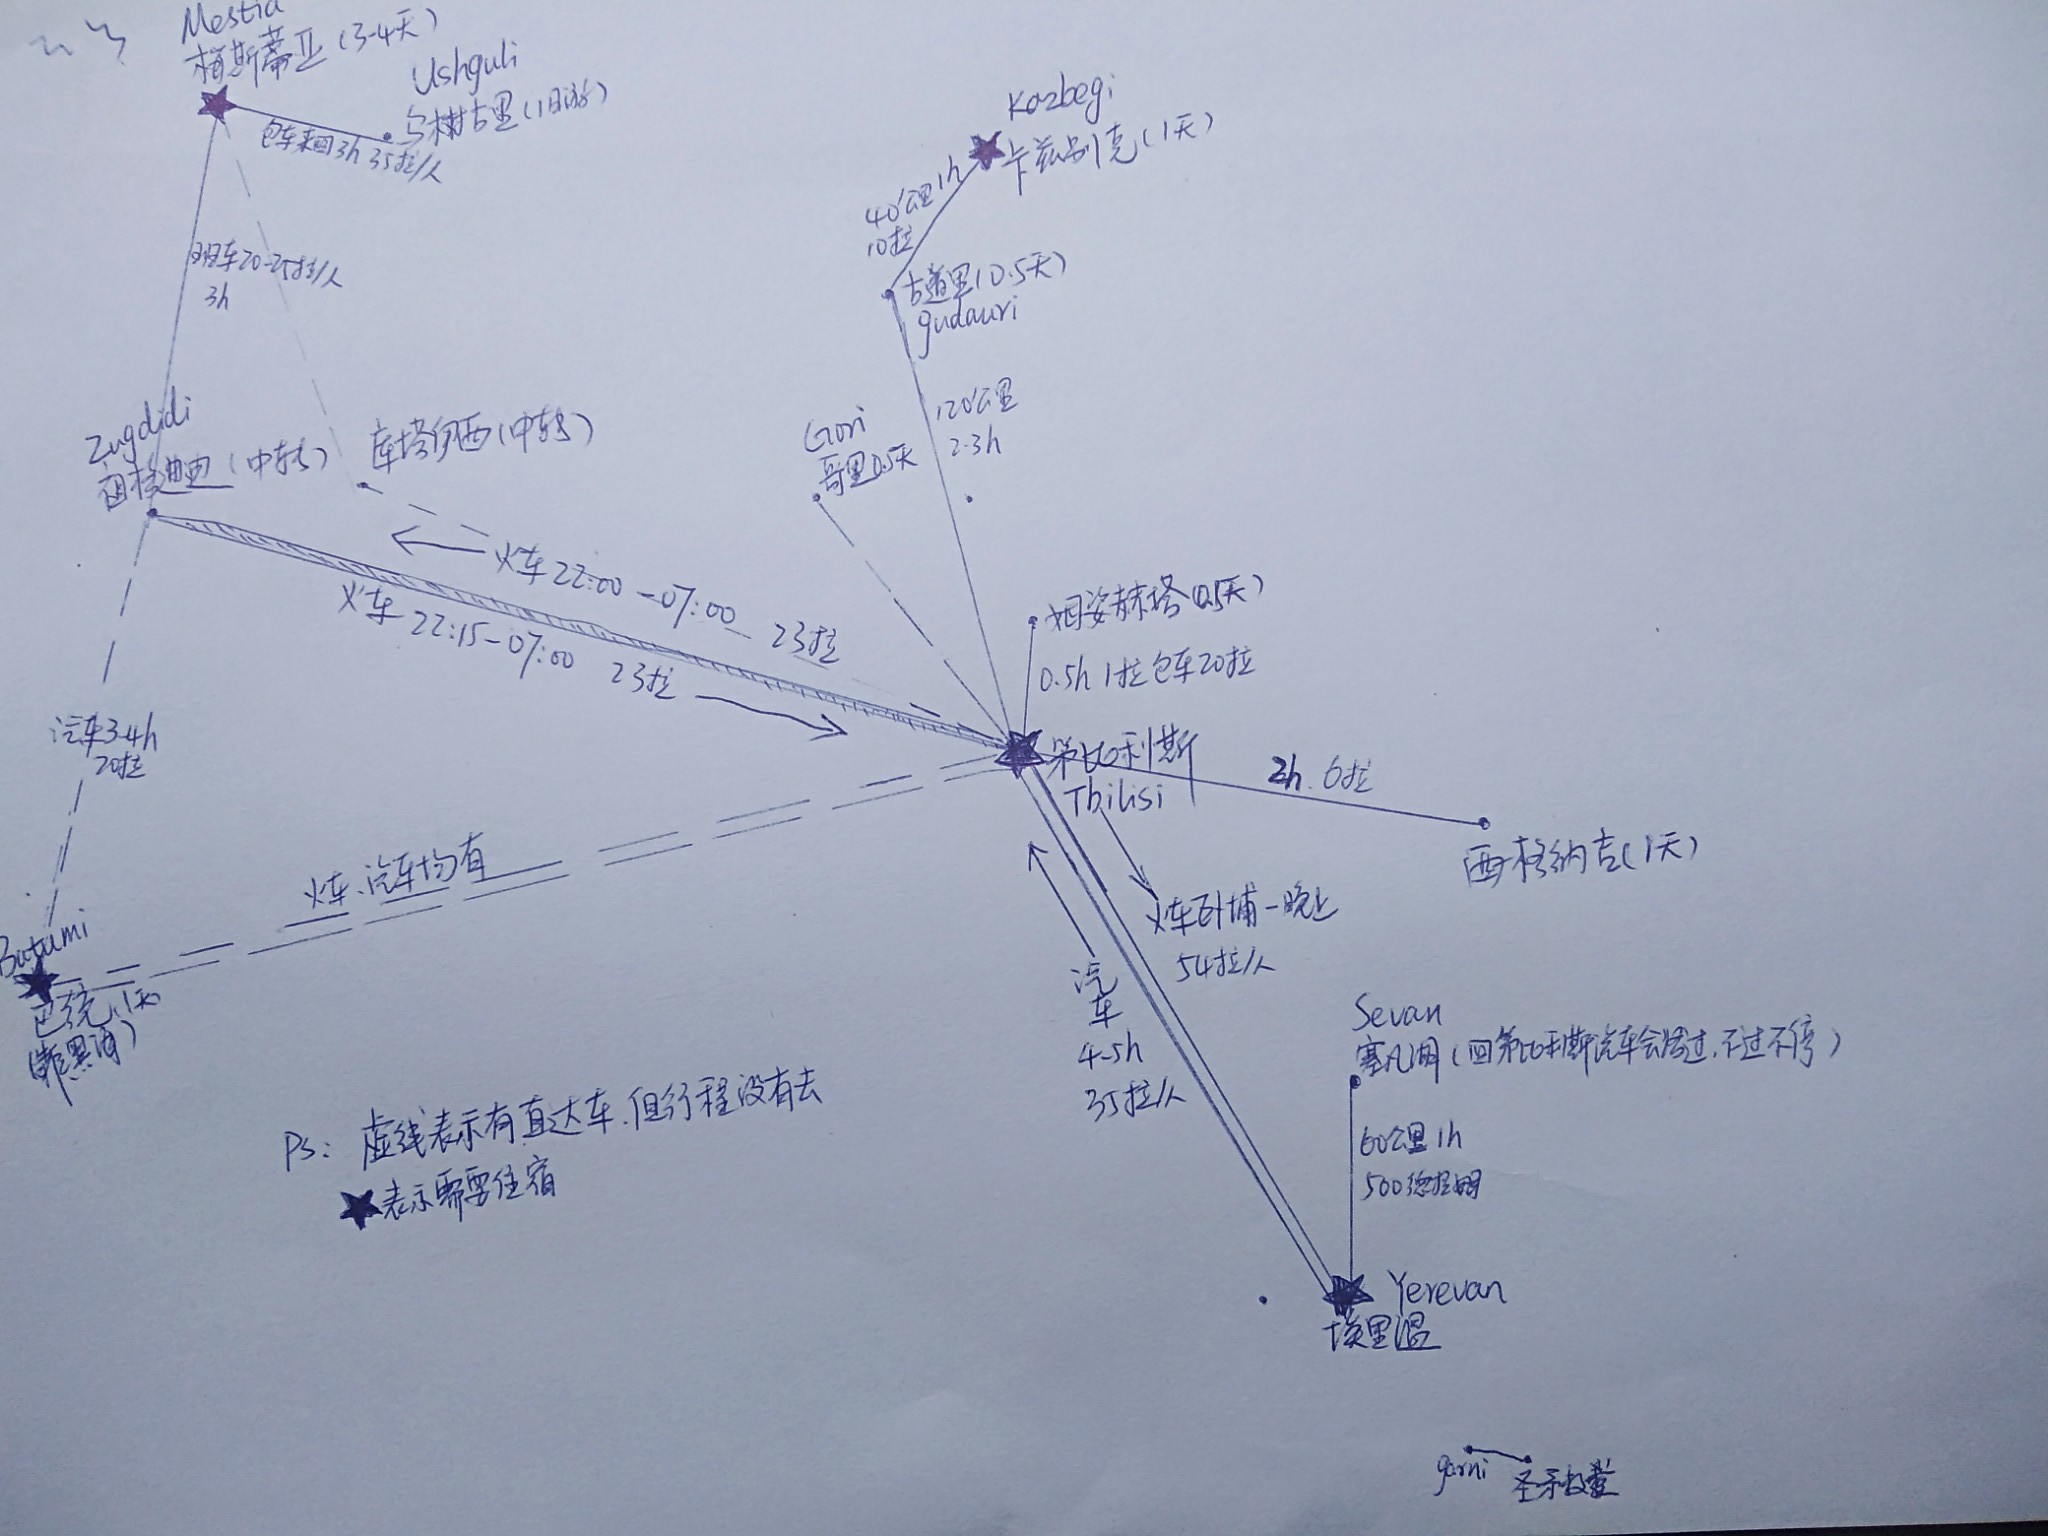 Mestia
梅斯蒂亚(3-4天)
Ushguli
乌树古里(1日游)
包车来回3h 35拉/人
Kazbegi
卡兹别克(1天)
40公里 1h
10拉
古道里(0.5天)
gudauri
班车20-25拉/人
3h
120公里
2-3h
Gori
哥里0.5天
Zugdidi
祖格迪迪(中转)
库塔伊西(中转)
火车22:00-07:00 23拉
火车22:15-07:00 23拉
姆姿赫塔(0.5天)
0.5h 1拉 包车20拉
汽车3-4h
20拉
第比利斯
Tbilisi
2h 6拉
西格纳吉(1天)
火车、汽车均有
Butumi
巴统,1天
(靠黑海)
火车卧埔一晚上
54拉/人
汽
车
4-5h
35拉/人
Sevan
塞凡湖(回第比利斯汽车会路过,不过不停)
60公里 1h
500德拉姆
PS: 虚线表示有直达车,但行程没有去
★表示需要住宿
Yerevan
埃里温
garni